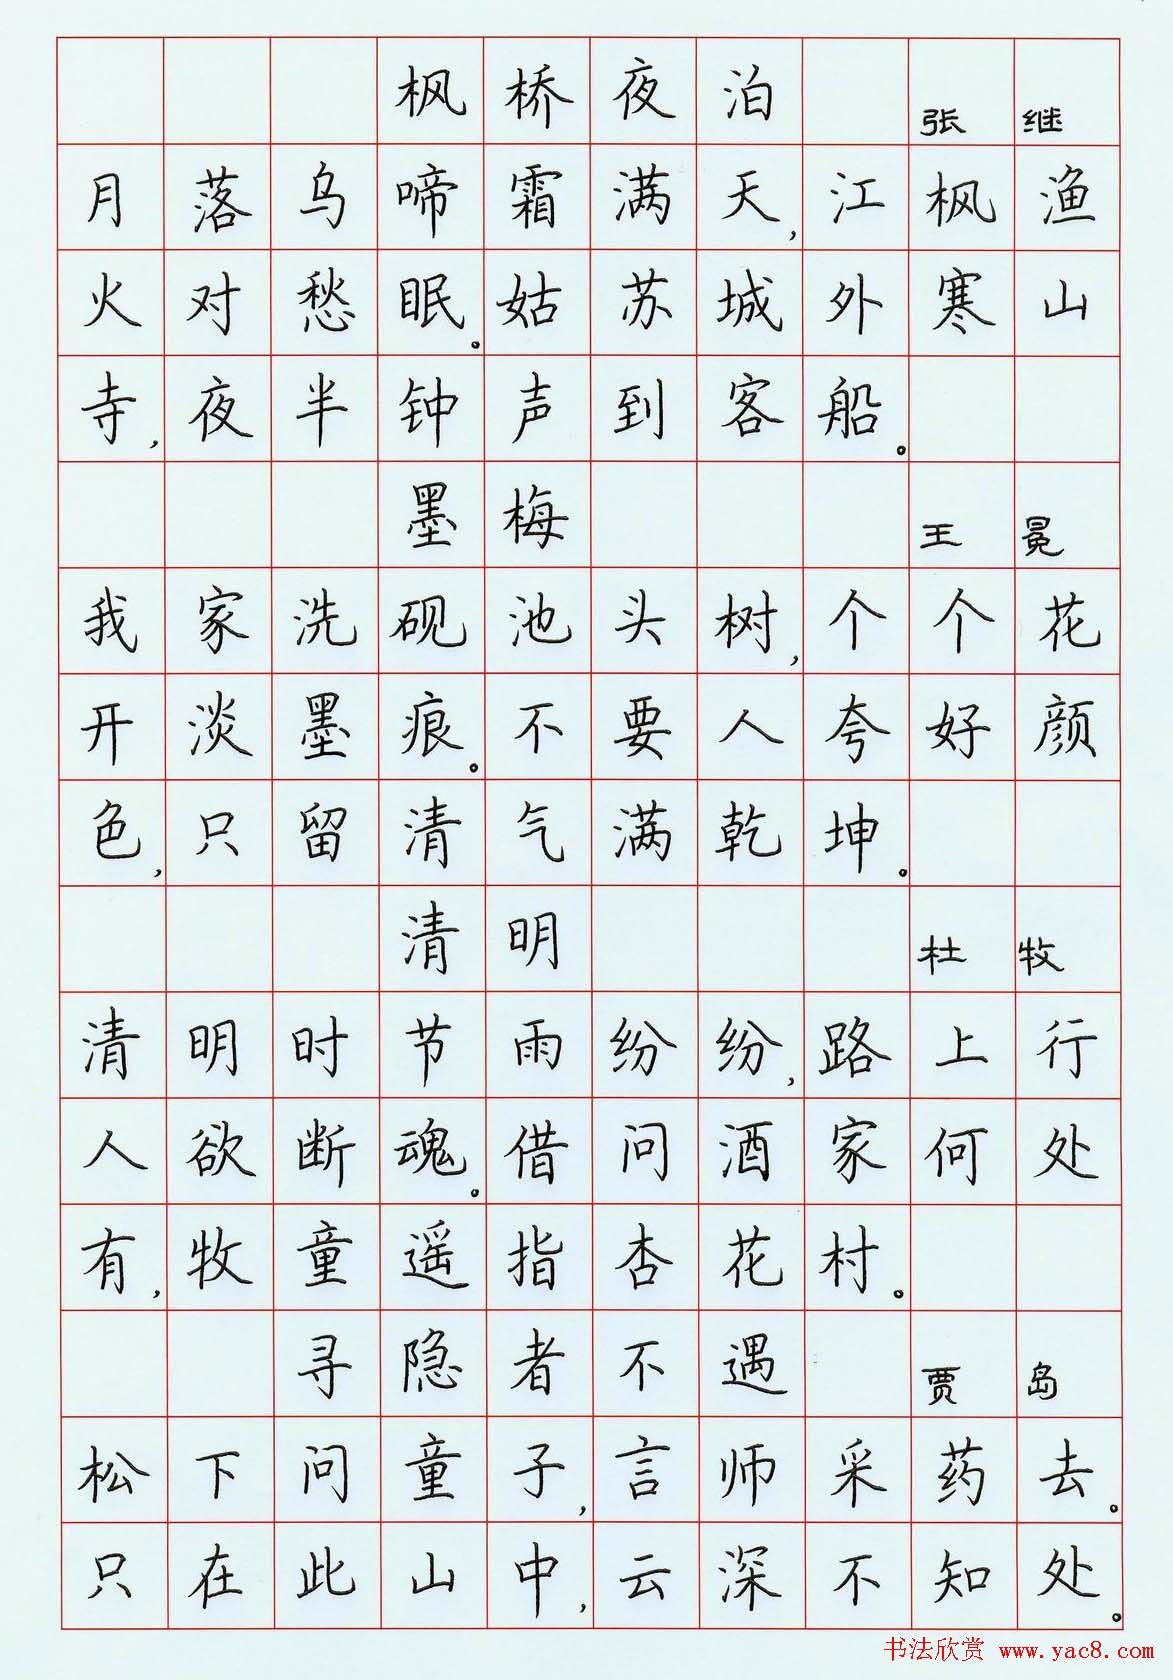 枫桥夜泊 张继
月落乌啼霜满天,江枫渔
火对愁眠。姑苏城外寒山
寺,夜半钟声到客船。
墨梅 王冕
我家洗砚池头树,个个花
开淡墨痕。不要人夸好颜
色,只留清气满乾坤。
清明 杜牧
清明时节雨纷纷,路上行
人欲断魂。借问酒家何处
有,牧童遥指杏花村。
寻隐者不遇 贾岛
松下问童子,言师采药去。
只在此山中,云深不知处。
书法欣赏 www.yac8.com